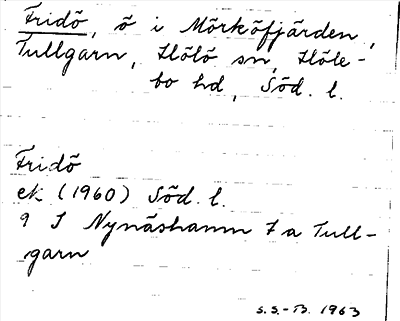 Fridö, ö i Mörköfjärden,
Tullgarn, Hölö sn, Höle-
bo hd, Söd. l.
Fridö
ek (1960) Söd. l.
9 I Nynäshamn 7 a Tull-
garn
S.S.-B. 1963